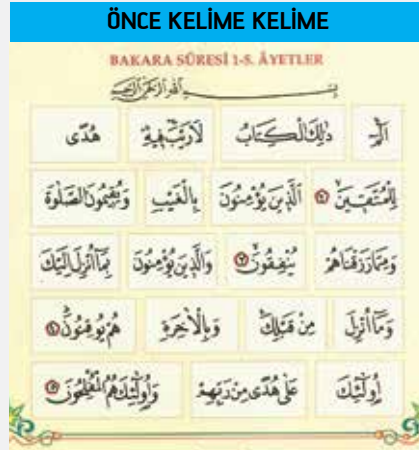 ÖNCE KELİME KELİME
BAKARA SÛRESİ 1-5. ÂYETLER
بِسْــــــــمِ اللّٰهِ الرَّحْمٰنِ الرَّحِيمِ
الٓمٓ ذٰلِكَ الْكِتَابُ لَا رَيْبَ فِيهِ هُدًى
لِلْمُتَّقِينَ الَّذِينَ يُؤْمِنُونَ بِالْغَيْبِ وَيُقِيمُونَ الصَّلٰوةَ
وَمِمَّا رَزَقْنَاهُمْ يُنْفِقُونَ وَالَّذِينَ يُؤْمِنُونَ بِمَٓا اُنْزِلَ اِلَيْكَ
وَمَٓا اُنْزِلَ مِنْ قَبْلِكَ وَبِالْاٰخِرَةِ هُمْ يُوقِنُونَ
اُو۬لٰٓئِكَ عَلٰى هُدًى مِنْ رَبِّهِمْ وَاُو۬لٰٓئِكَ هُمُ الْمُفْلِحُونَ